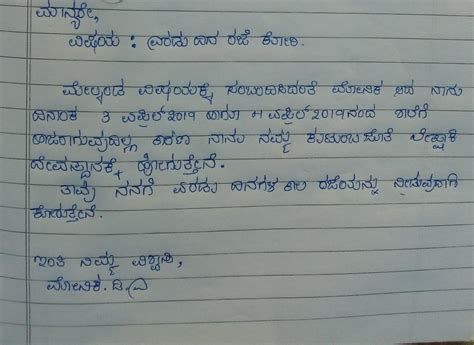 ಮಾನ್ಯರೇ,
ವಿಷಯ : ಎರಡು ದಿನ ರಜೆ ಕೋರಿ.
ಮೇಲ್ಕಂಡ ವಿಷಯಕ್ಕೆ ಸಂಬಂದಿಸಿದಂತೆ ಮೋನಿಕ ಆದ ನಾನು
ದಿನಾಂಕ 3 ಎಪ್ರಿಲ್ 2019 ಹಾಗೂ 4 ಎಪ್ರಿಲ್ 2019ನಂದ ಶಾಲೆಗೆ
ಹಾಜರಾಗುವುದಿಲ್ಲ ಕಾರಣ ನಾನು ನಮ್ಮ ಕುಟುಂಬ ಜೊತೆ
ದೇವಸ್ಥಾನಕ್ಕೆ ಹೋಗುತ್ತೇನೆ.
ತಾವು ನನಗೆ ಎರಡು ದಿನಗಳ ಕಾಲ ರಜೆಯನ್ನು ನೀಡುವುದಾಗಿ
ಕೋರುತ್ತೇನೆ.
ಇಂತಿ ನಿಮ್ಮ ವಿಶ್ವಾಸಿ,
ಮೋನಿಕ. ಡಿ.